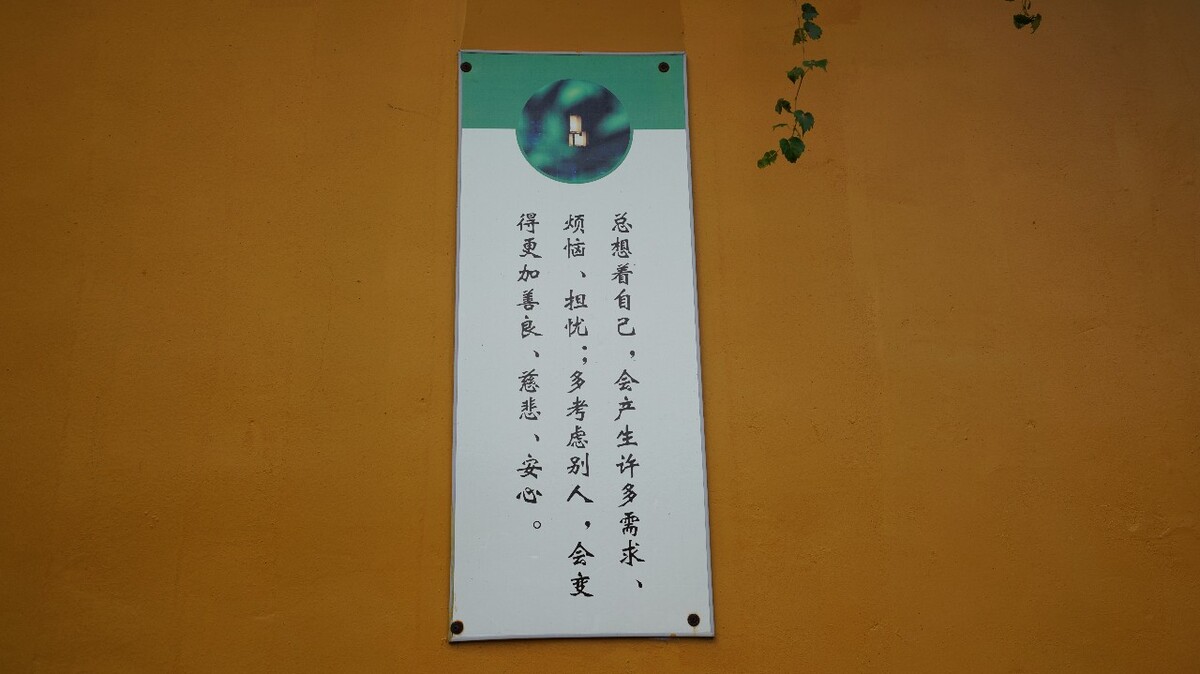 总想着自己，会产生许多需求、
烦恼、担忧；多考虑别人，会变
得更加善良、慈悲、安心。